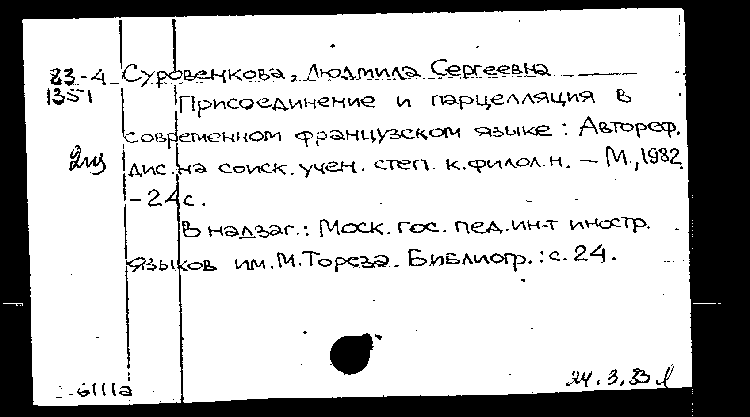 83-4 Суровенкова, Людмила Сергеевна
1351 Присоединение и парцелляция в
современном французском языке: Автореф.
2 дис. на соиск. учен. степ. к.филол.н. – М., 1982
– 24 с.
В надзаг.: Моск. гос. пед. ин-т иностр.
языков им. М. Тореза. Библиогр.: с. 24.
6111а 24.3.83